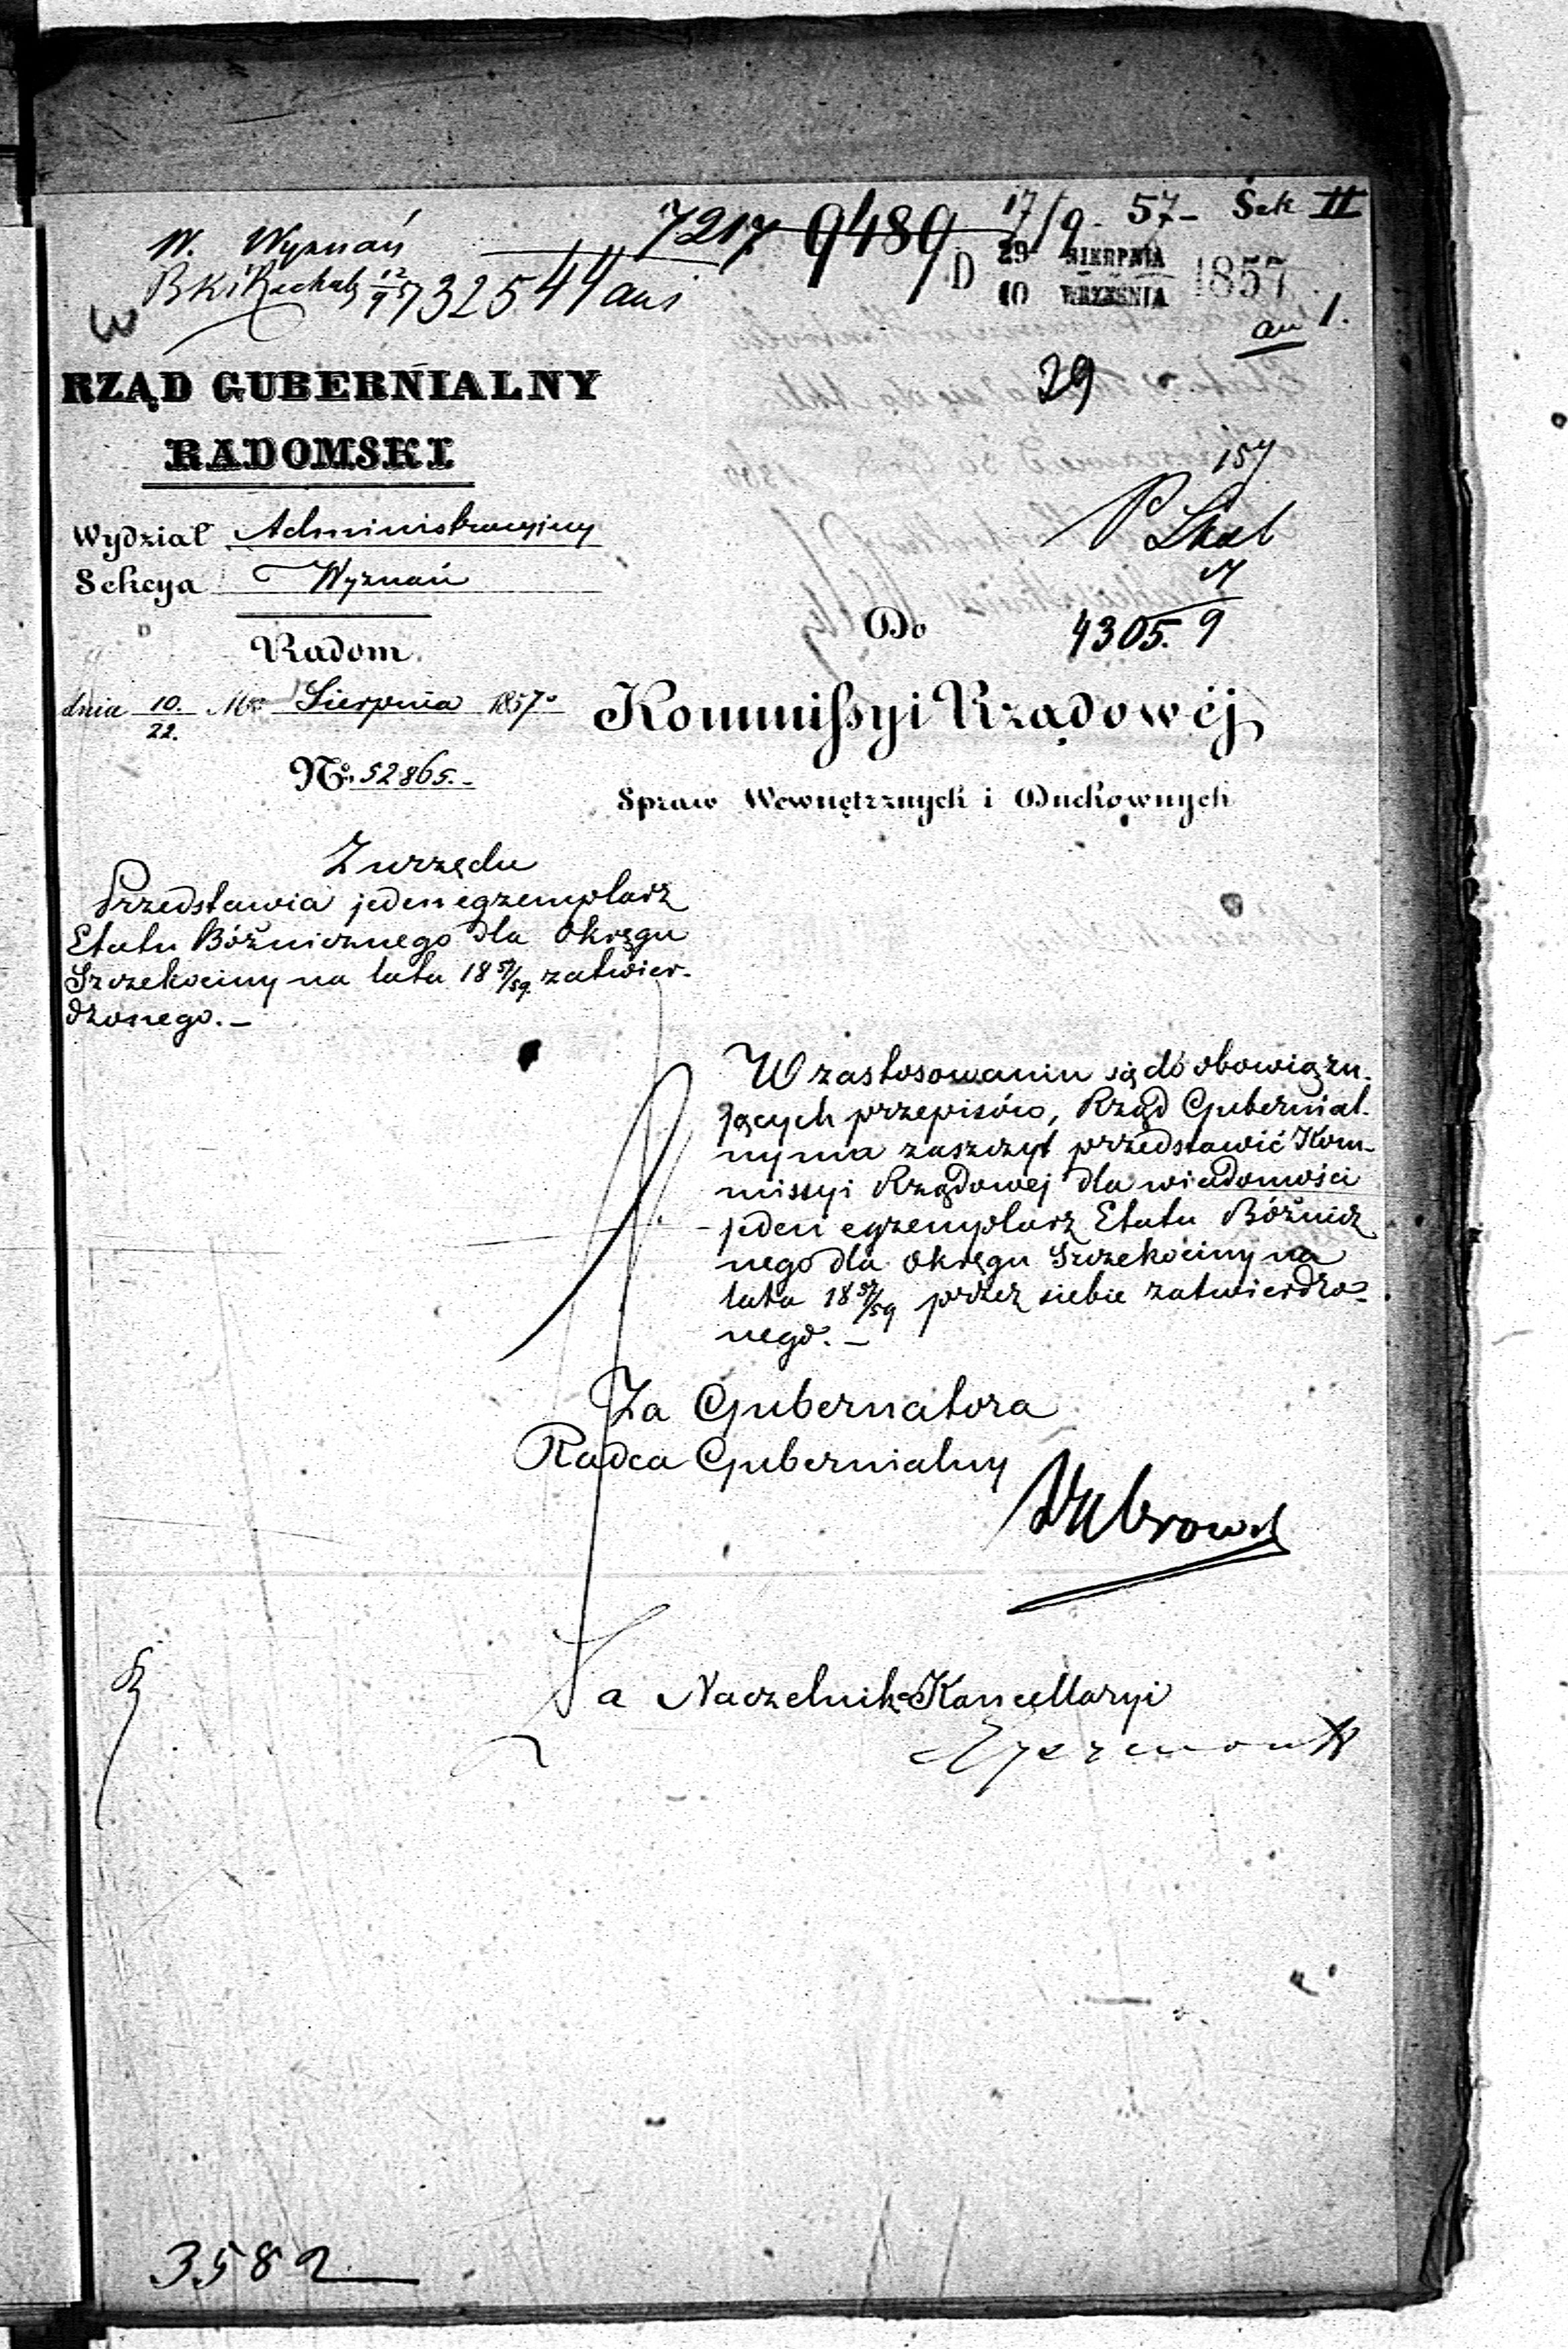 W. Wyznań 7217 9489 17/9 - 57 - Sek II
D 29 SIERPNIA
10 WRZEŚNIA 1857
32544
an 1.
RZĄD GUBERNIALNY
29
RADOMSKI
157
Wydział Administracyjny
P. Skal
Sekcya Wyznań
Do
4305. 9
Radom
dnia 10./22. Sierpnia 1857
Kommissyi Rządowéj
No 52865.
Spraw Wewnętrznych i Duchownych
Z urzędu
Przedstawia jeden egzemplarz
Etatu Bóżnicznego dla Okręgu
Szczekociny na lata 18 57/59. zatwier-
dzonego. -
W zastosowaniu się do obowiązu-
jących przepisów, Rząd Gubernial-
ny ma zaszczyt przedstawić Kom-
missyi Rządowej dla wiadomości
jeden egzemplarz Etatu Bóżnicz
nego dla Okręgu Szczekociny na
lata 18 57/59 przez siebie zatwierdzo-
nego. -
Za Gubernatora
Radca Gubernialny
Za Naczelnika Kancellaryi
3582